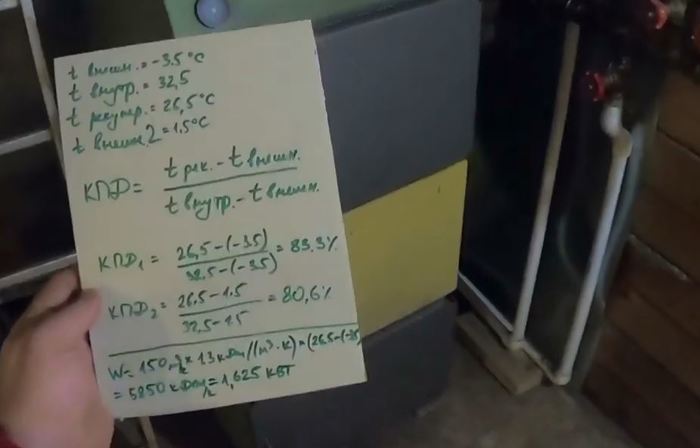 t внешн. = -3.5°C
t внутр. = 32,5
t рекупер. = 26,5°C
t внешн.2 = 1.5°C
КПД = t рек. - t внешн. / t внутр. - t внешн.
КПД₁ = 26,5-(-3.5) / 32.5-(-3.5) = 83.3%
КПД₂ = 26,5-1.5 / 32,5-1.5 = 80,6%
W = 150 м³/ч × 1.3 кДж/(м³·К) × (26,5-(-3.5)
= 5850 кДж/ч = 1,625 кВт